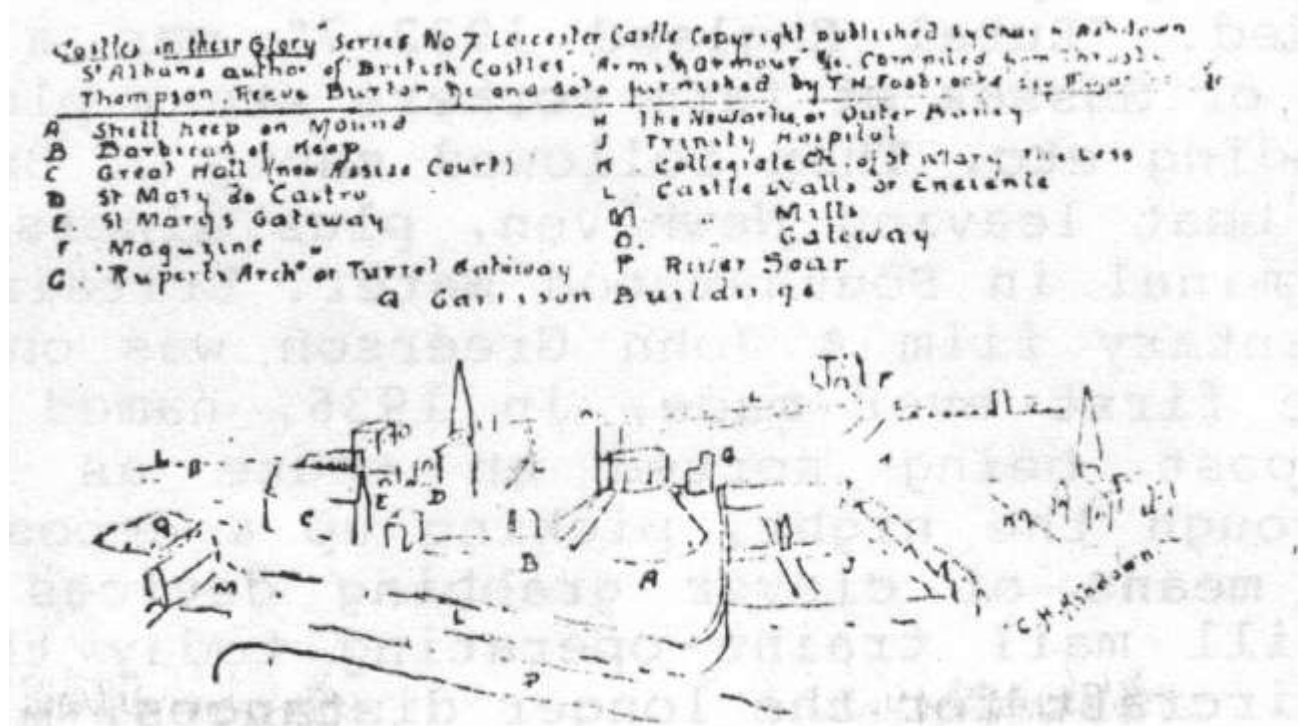 Castles in their Glory" Series No 7 Leicester Castle Copyright published by Chas H Ashdown
St Albans author of British Castles", Arms & Armour &c. Compiled from Throsby
Thompson, Reeve Burton &c and data furnished by T.H. Fosbrooke
A Shell Keep on Mound
B Barbican of Keep
C Great Hall (now Assise Court)
D St Mary de Castro
E St Marys Gateway
F Magazine "
G "Ruperts Arch" or Turret Gateway
H The Newarke or Outer Bailey
J Trinity Hospital
K Collegiate Ch. of St Mary the Less
L Castle Walls or Enceinte
M " Mills
O. " Gateway
P River Soar
Q Garrison Buildings
F
L
B
G
Q
E
D
C
M
B
A
J
L
P
C H Ashdown